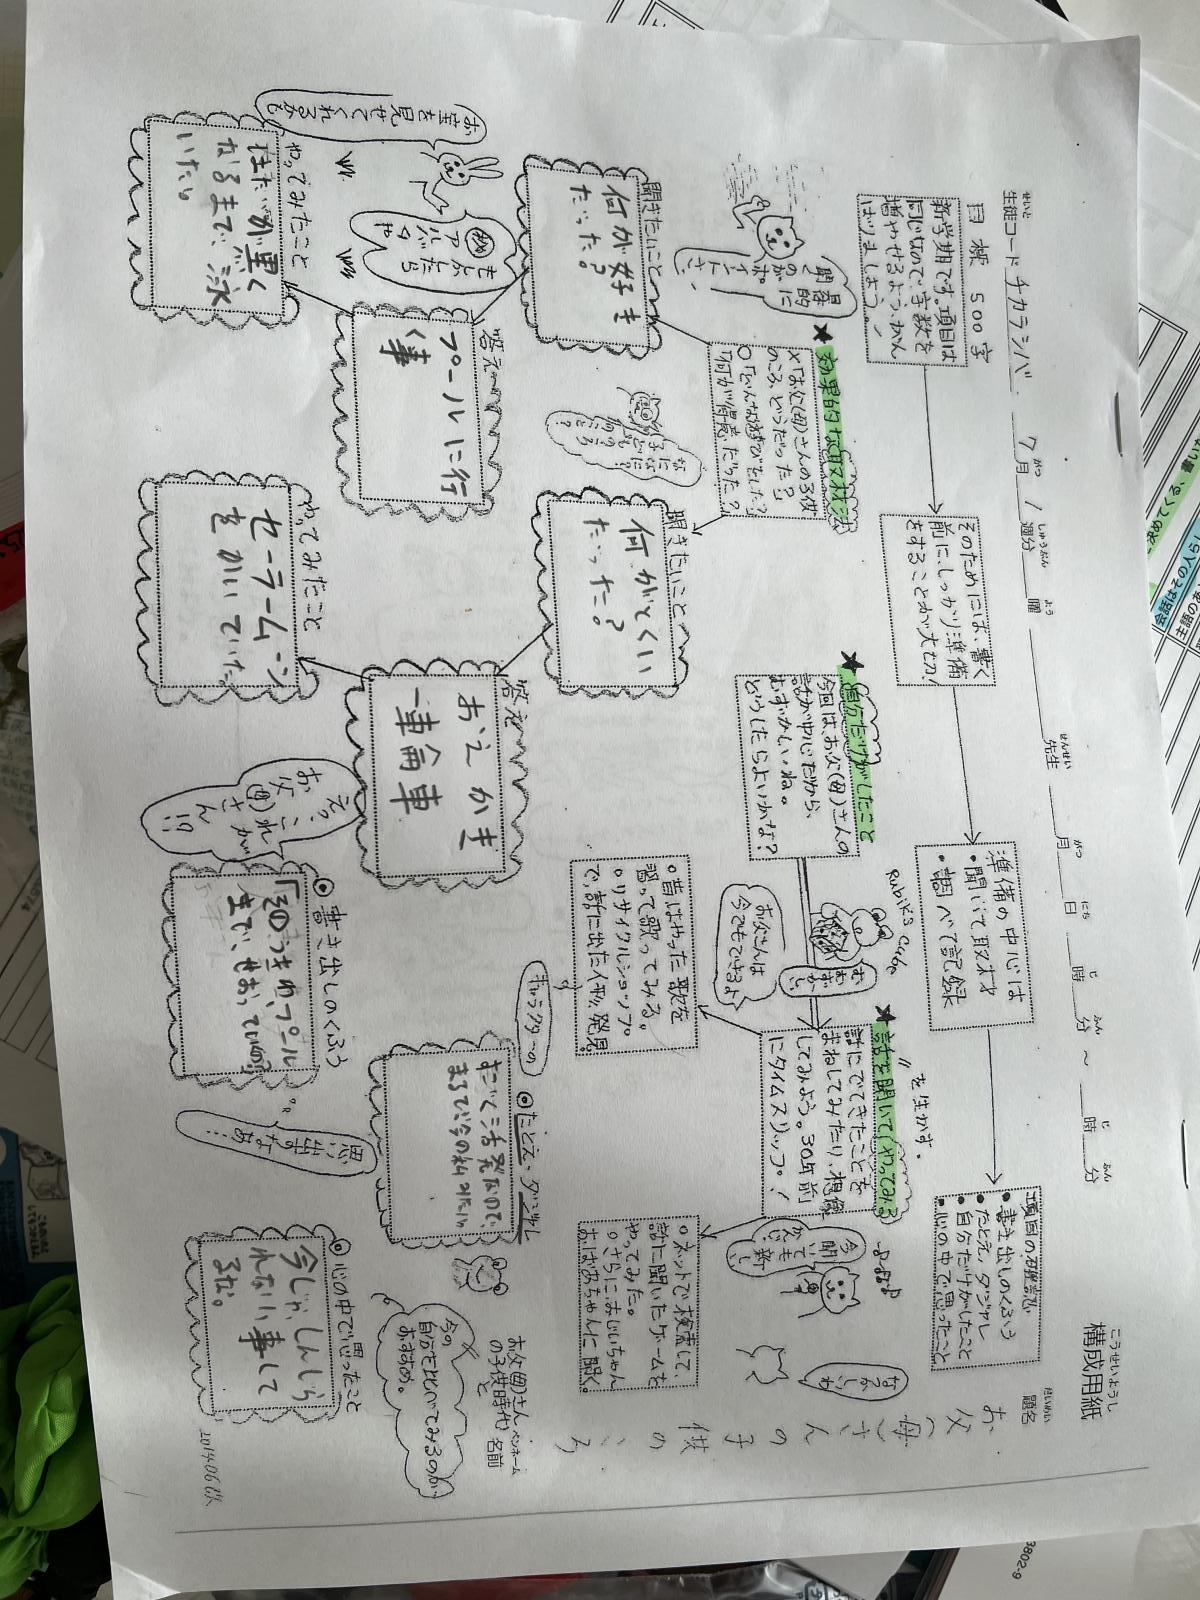 構成用紙
こうせいようし
生徒コード チカラシバ 7月 1週分 曜 先生 月 日 時 分 ～ 時 分
題名
お父(母)さんの子供のころ
目標 500字
新学期です。項目は
同じなので、字数を
増やせるよう、がん
ばりましょう。!
そのためには、書く
前に、しっかり準備
をすることが大切!
準備の中心は
・聞いて取材
・調べて記録
項目の確認
・書き出しのくふう
・たとえ、ダジャレ
・自分だけがしたこと
・心の中で思ったこと
★効果的な取材法
×「お父(母)さんの子供
のころ、どうだった?」
○「どんな遊びをした?」
「何が得意だった?」
具体的に
聞く
のがポイントさ。
★自分だけがしたこと
今回は、お父(母)さんの
話が中心だから、
むずかしいね。
どうしたらよいかな?
Rubik's cube
お父さんは
今でもできるよ
★話を聞いてやってみる
を生かす。
話にでてきたことを
まねしてみたり、想像
してみよう。30年前
にタイムスリップ!
○昔はやった歌を
習って歌ってみる。
○リサイクルショップ
で、話に出た人形発見
キャラクターの
○ネットで検索して、
話に聞いたゲームを
やってみた。
○さらに、おじいちゃん
おばあちゃんに聞く。
今聞いても新しい
なつかしいわ
聞きたいこと
何が好き
だった?
答え
プールに行
く事
やってみたこと
はだが黒く
なるまで、泳
いだ。
お宝を見せてくれるかも
聞きたいこと
何がとくい
だった?
子どもになに?
答え
おえかき
一輪車
やってみたこと
セーラームーン
をかいていた
えっ、これが
お父(母)さん!?
◎書き出しのくふう
思い出すなあ…
◎たとえ、ダジャレ
すごく活発なので、
まるで今の私みたい
◎心の中で思ったこと
お父(母)さん
の子供時代と
今の
自分を比べてみるのが
おすすめ。
ペンネーム
名前
2014.06
3802-9